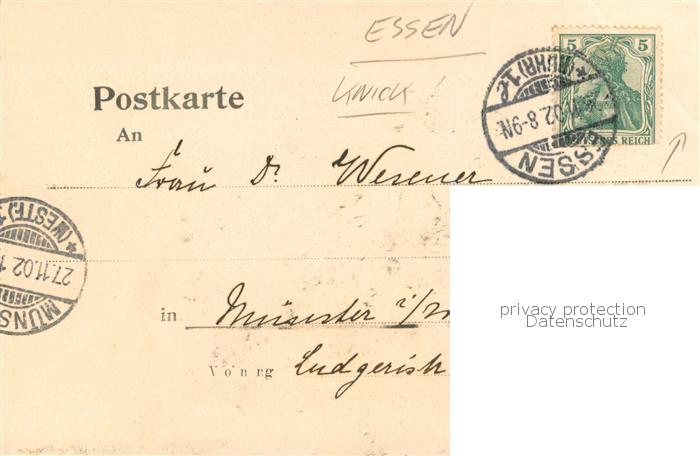 ESSEN
KNICK!
5 5
DEUTSCHES REICH
*(RUHR)1.c
02.8-9N
ESSEN
Postkarte
An
Frau Dr. Wesener
*(WESTF.)1
27.11.02.1
MÜNS
in Münster i/
Ludgerish
privacy protection
Datenschutz